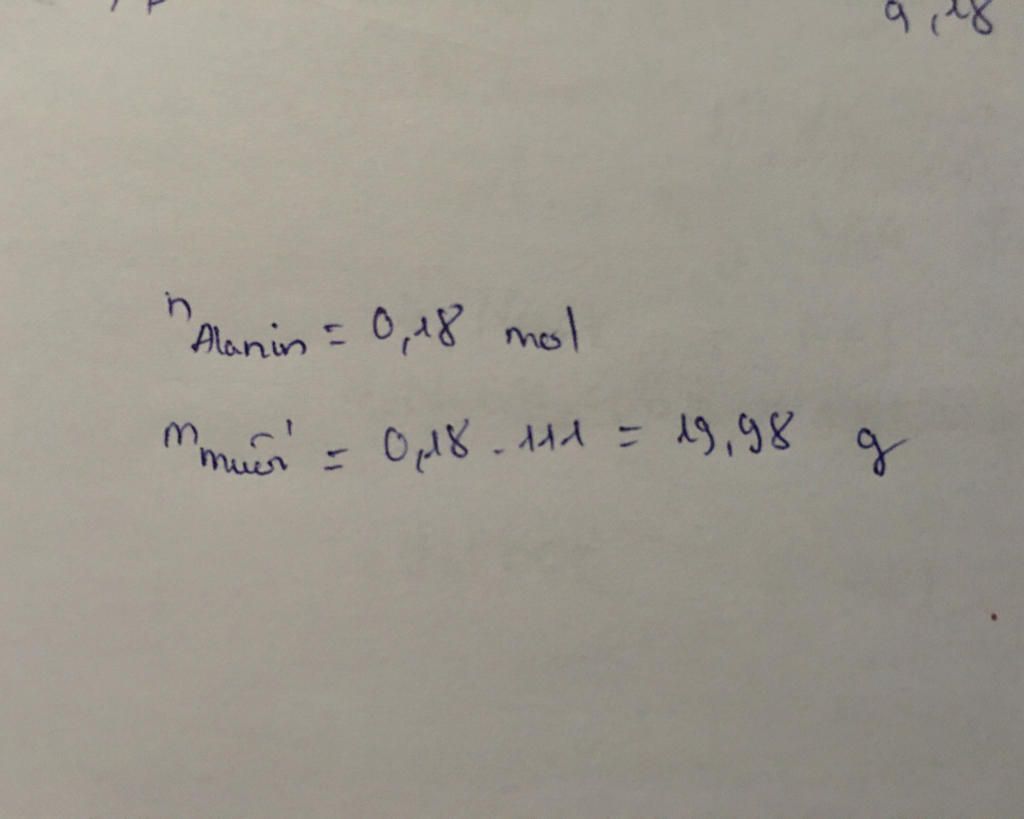 0,18
n Alanin = 0,18 mol
m muối = 0,18 . 111 = 19,98 g